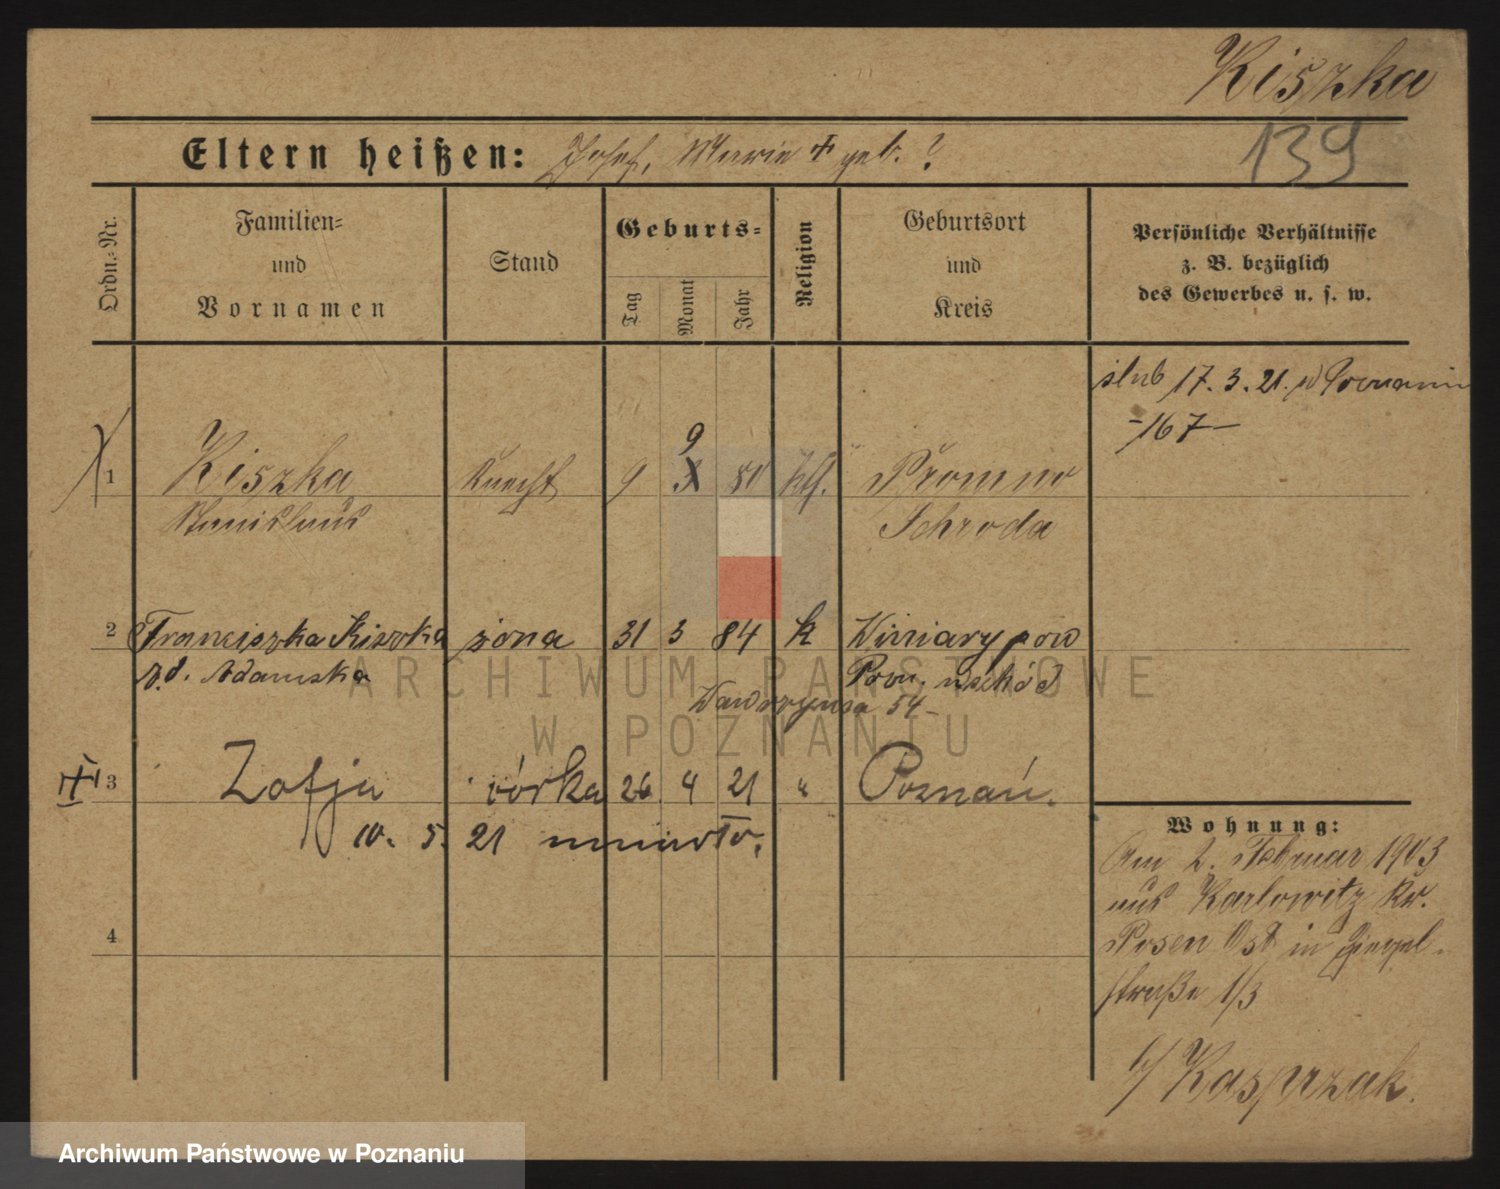 Kiszka
139
Eltern heißen: Josef, Marie + geb. ?
Ordn.-Nr.
Familien-
und
Vornamen
Stand
Geburts-
Tag
Monat
Jahr
Religion
Geburtsort
und
Kreis
Persönliche Verhältnisse
z. B. bezüglich
des Gewerbes u. s. w.
slub 17. 3. 21. w Poznaniu
-167-
1 Kiszka Knecht 9 9 80 kth. Promno
Stanislaus Schroda
2 Franciszka Kiszka żona 31 3 84 k Winiary pow
z d. Adamska Pozn. wschód
Wawrzynca 54-
3 Zofja córka 26 4 21 " Poznań.
10. 5. 21
4
Wohnung:
Am 2. Februar 1903
aus Karlowitz Kr.
Posen Ost in Ziegel-
straße 1/3
b/ Kasprzak.
ARCHIWUM PAŃSTWOWE
W POZNANIU
Archiwum Państwowe w Poznaniu